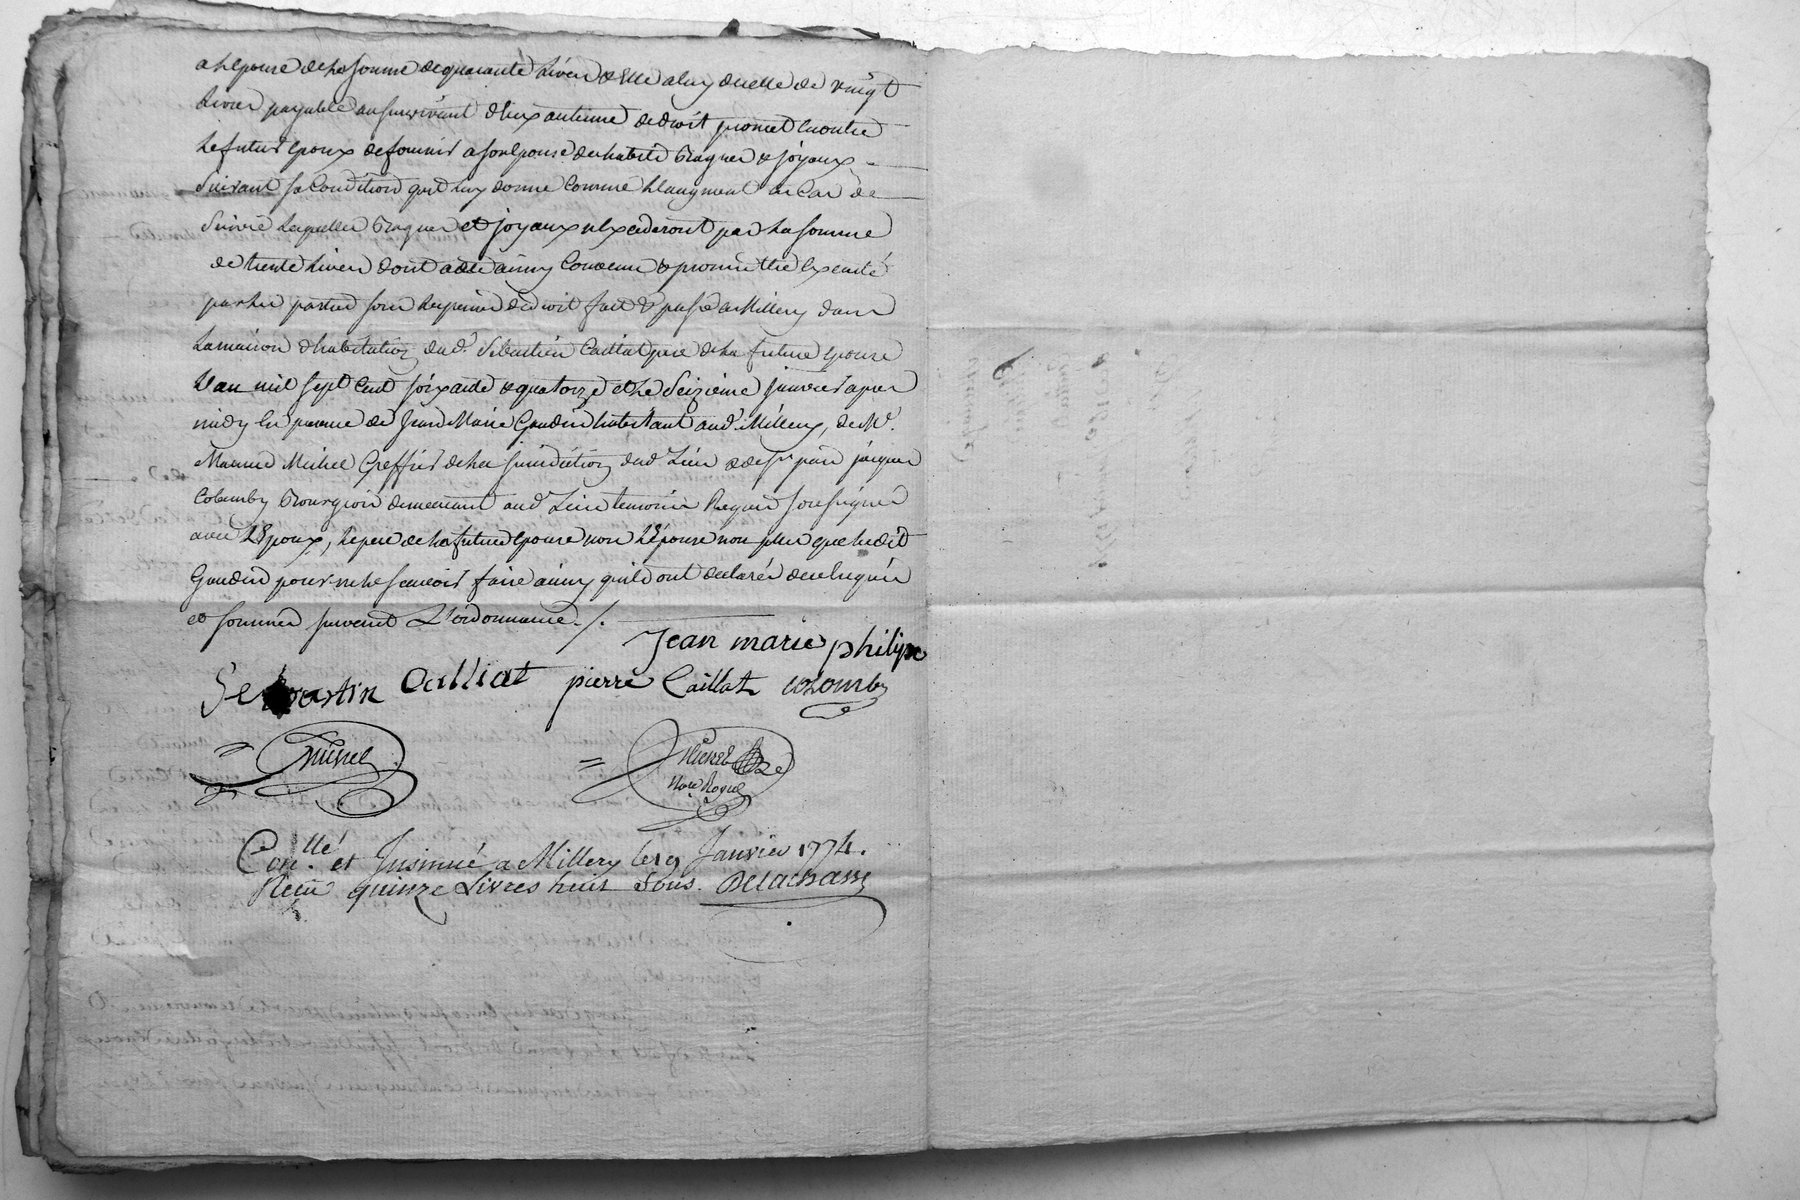 a l'epouse de la somme de quarante livres & elle a luy de celle de vingt
livres payable au survivant d'eux autienne de droit promet en outre
le futur epoux de fournir a son epouse des habits bagues & joyaux
suivant sa condition qu'il luy donne comme l'augment en cas de
survie lesquelles bagues et joyaux n'excederont pas la somme
de trente livres dont a été ainsy convenu & promis etre executé
par les parties sous les peines de droit fait & passé a Millery dans
la maison d'habitation dud. Sebastien Caillat pere de la future epouse
l'an mil sept cent soixante & quatorze et le seizieme janvier apres
midy en presence de Jean Marie Gaudin habitant aud. Millery, de Mr.
Michel Greffier de la juridiction dud. Lieu & de sr. jacques
Colomby Bourgeois demeurant aud. Lieu temoins Requis soussignés
avec l'Epoux, le pere de la future epouse non l'épouse non plus que ledit
Gaudin pour ne le scavoir faire ainsy qu'ils ont declaré de ce enquis
et sommés suivant L'ordonnance ./.
Jean marie philipe
Sebastin Calliat pierre Caillat colomby
Michel
Nore Royal
Con.llé et Insinué a Millery le 19 Janvier 1774.
Reçu quinze Livres huit sous. Delachasse